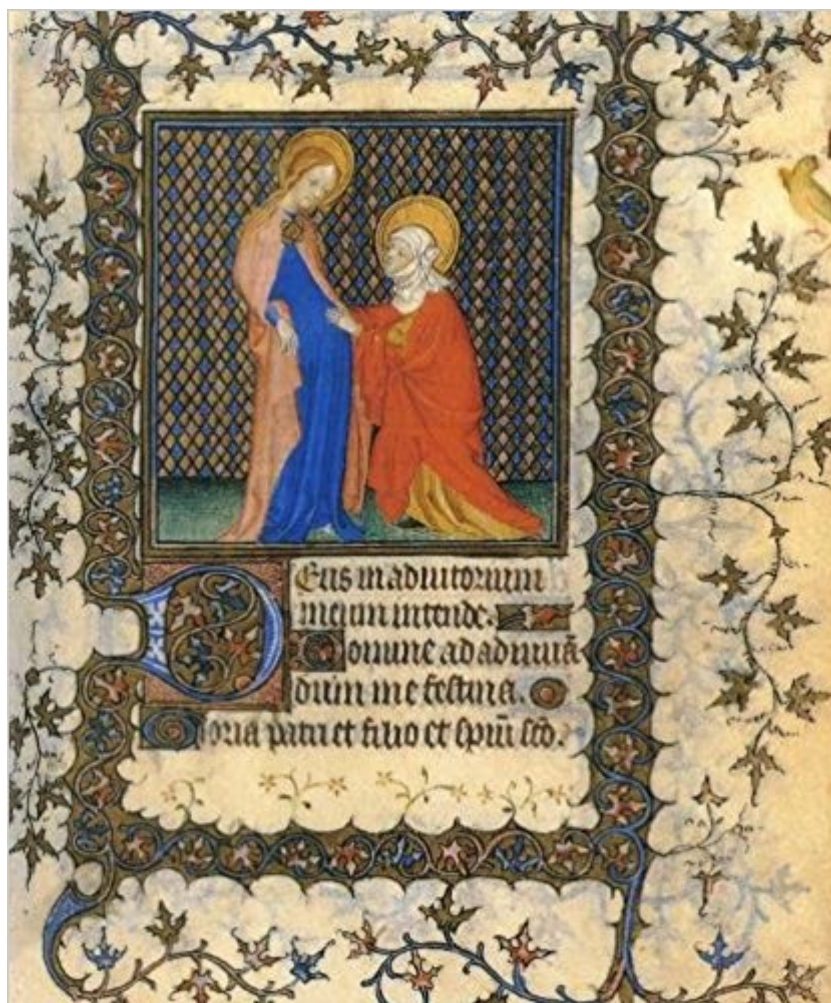 Deus in adiutorium
meum intende.
Domine ad adiuuā
dum me festina.
Gloria patri et filio et spiū scō.